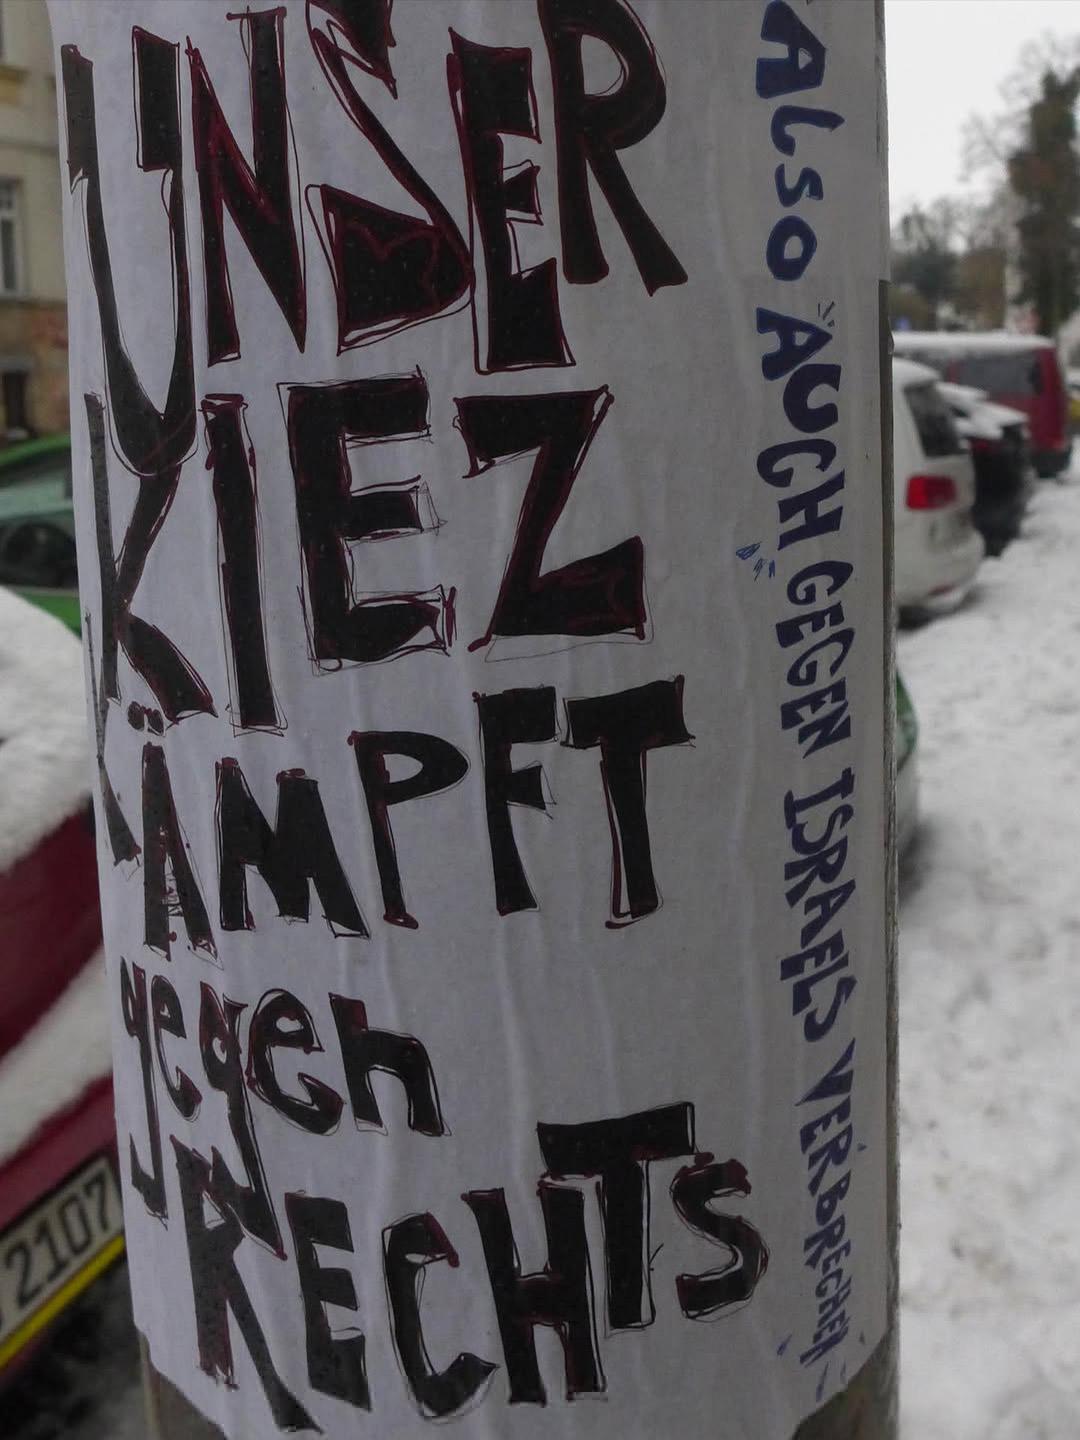 UNSER
KIEZ
KÄMPFT
gegen
RECHTS
ALSO AUCH GEGEN ISRAELS VERBRECHEN
2107